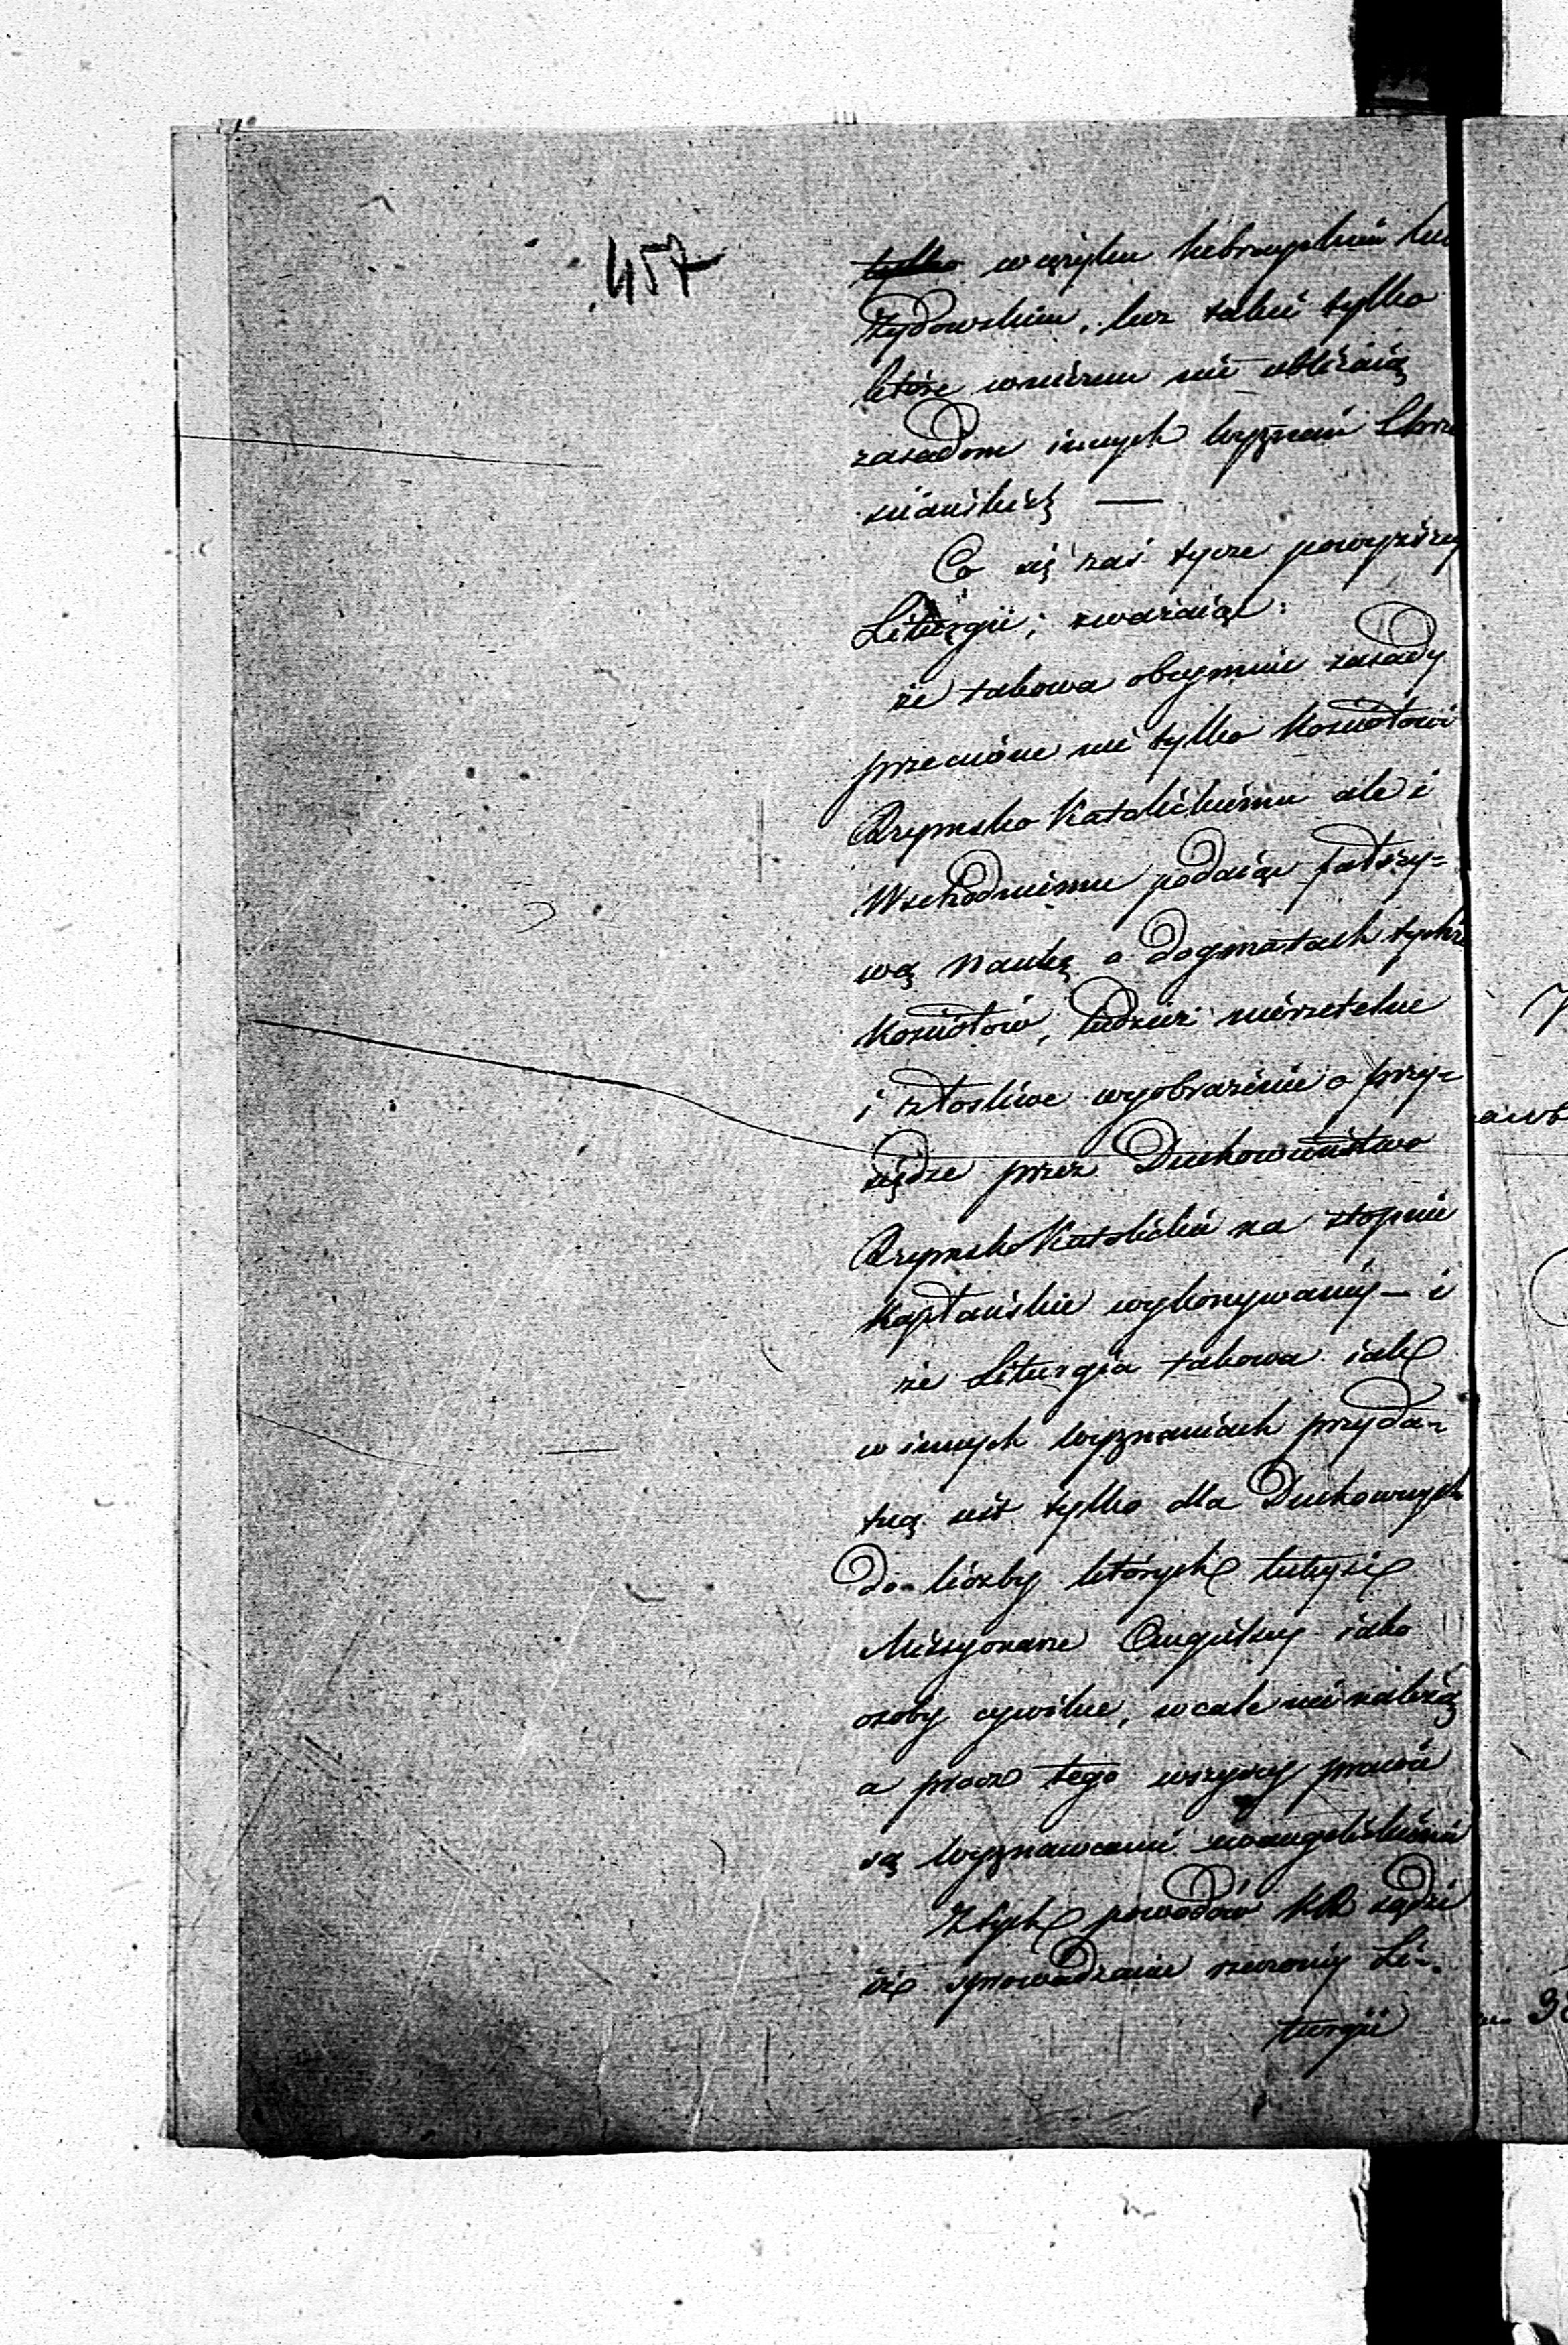 457
tylko w języku hebrayskim lub
Żydowskim, lecz takie tylko
które w niczem nie ubliżaią
zasadom innych wyznań Chrze
ściańskich —
Co się zaś tycze powyższey
Liturgii; zważaiąc:
że takowa obeymuie zasady
przeciwne nie tylko Kościołowi
Rzymsko Katolickiemu ale i
Wschodniemu podaiąc fałszy=
wą naukę o dogmatach tychże
Kościołów, tudzież nierzetelne
i złośliwe wyobrażenie o przy=
siędze przez Duchowieństwo
Rzymsko Katolickie na stopnie
Kapłańskie wykonywaney — i
że Liturgia takowa iak
w innych wyznaniach przyda=
tną iest tylko dla Duchownych
do liczby których tuteysi
Missyonarze Angielscy iako
osoby cywilne, wcale nie należą
a procz tego wszyscy prawie
są wyznawcami ewangelickiemi
Z tych powodów KR sądzi
iż sprowadzanie rzeczoney Li=
turgii